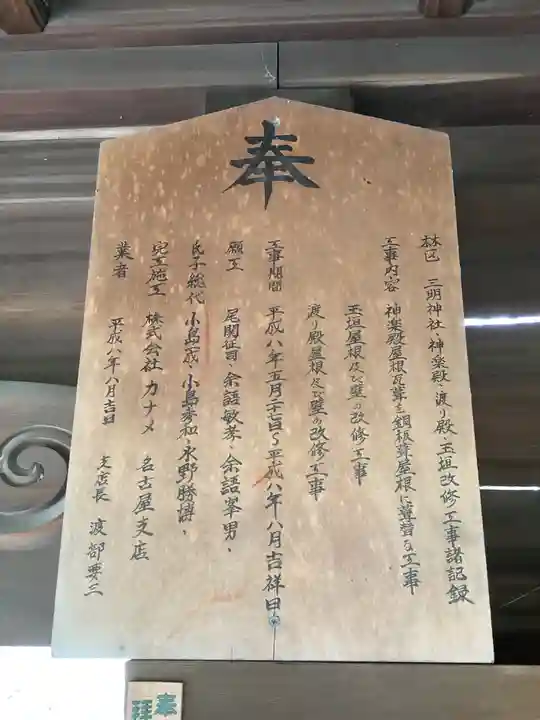 奉
林区 三明神社 神楽殿、渡り殿、玉垣改修工事諸記録
工事内容 神楽殿屋根瓦葺を銅板葺屋根に葺替る工事
玉垣屋根及び壁の改修工事
渡り殿屋根及び壁の改修工事
工事期間 平成八年五月二十七日〜平成八年八月吉祥日
願主 尾関征司、余語敏孝、余語挙男、
氏子総代 小島一成、小島孝和、水野勝博、
完工施工 株式会社カナメ 名古屋支店
業者 支店長 渡部要三
平成八年八月吉日
奉
拝